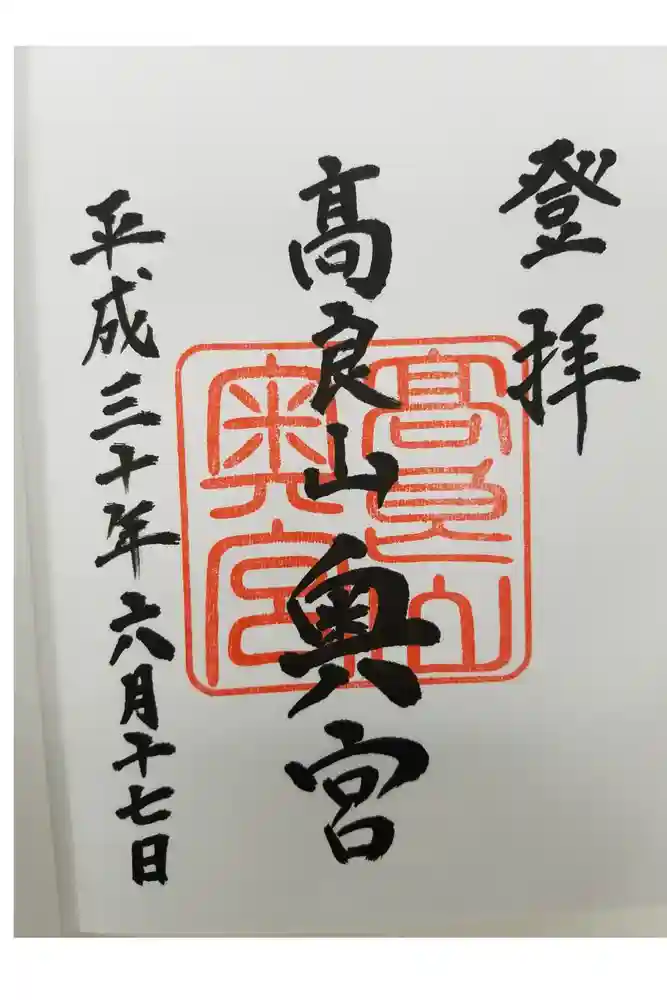 登拝
高良山奥宮
高良山
奥宮
平成三十年六月十七日